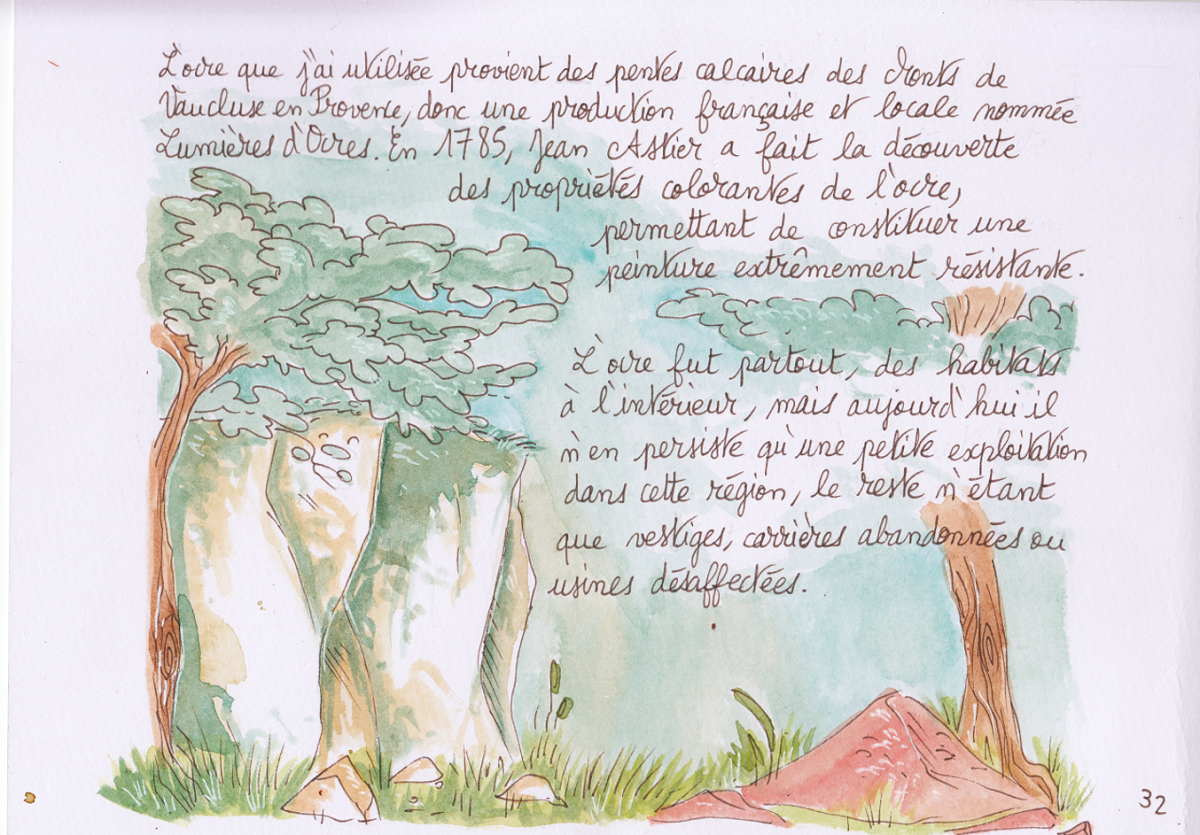 L'ocre que j'ai utilisée provient des pentes calcaires des Monts de
Vaucluse en Provence, donc une production française et locale nommée
Lumières d'Ocres. En 1785, Jean Astier a fait la découverte
des propriétés colorantes de l'ocre,
permettant de constituer une
peinture extrêmement résistante.
L'ocre fut partout, des habitats
à l'intérieur, mais aujourd'hui il
n'en persiste qu'une petite exploitation
dans cette région, le reste n'étant
que vestiges, carrières abandonnées ou
usines désaffectées.
32